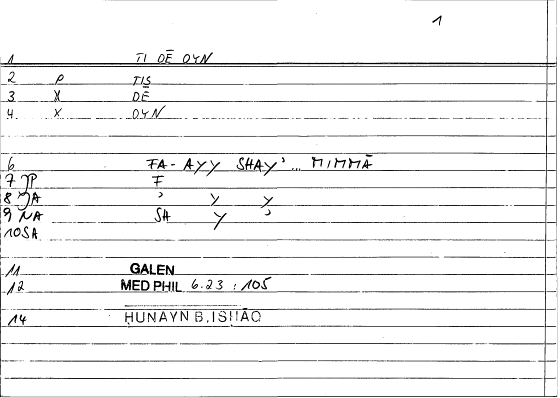 1
1 TI DĒ OYN
2 P TIS
3 X DĒ
4. X OYN
6. FA- AYY SHAY' ... MIMMĀ
7 JP F
8 JA ' Y Y
9 NA SA Y '
10 SA
11 GALEN
12 MED PHIL 6.23 : 105
14 ḤUNAYN B. ISḤĀQ